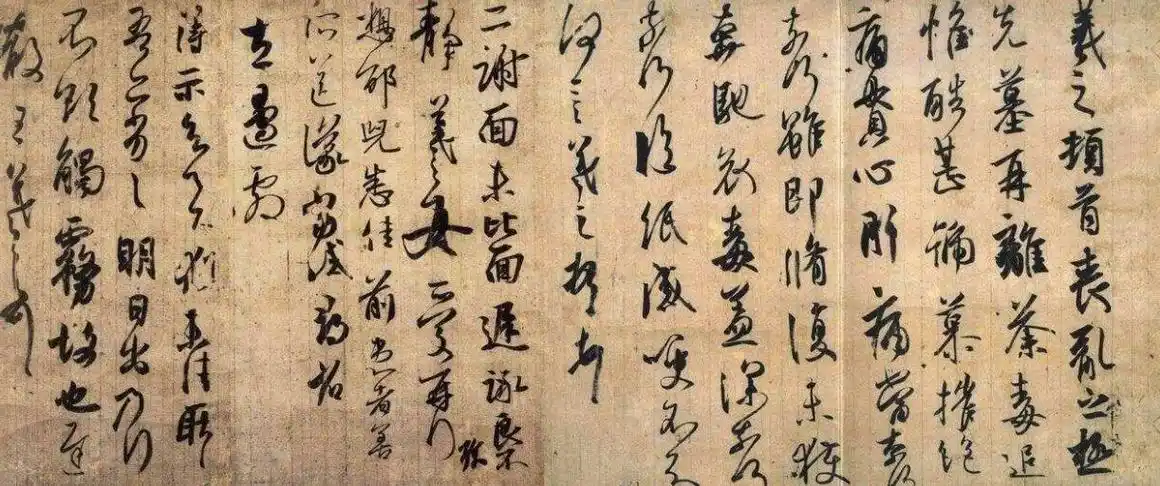 羲之頓首喪亂之極
先墓再離荼毒追
惟酷甚號慕摧絕
痛貫心肝痛當奈何
奈何雖即脩復未獲
奔馳哀毒益深奈何
奈何臨紙感哽不知
何言羲之頓首頓首
二謝面未比面遲詠良不
靜羲之女愛再拜
想邰兒悉佳前患者善
所送議當試尋
左邊劇
得示知足下猶未佳耿耿
吾亦劣劣明日出乃行
不欲觸霧故也遲
散王羲之頓首